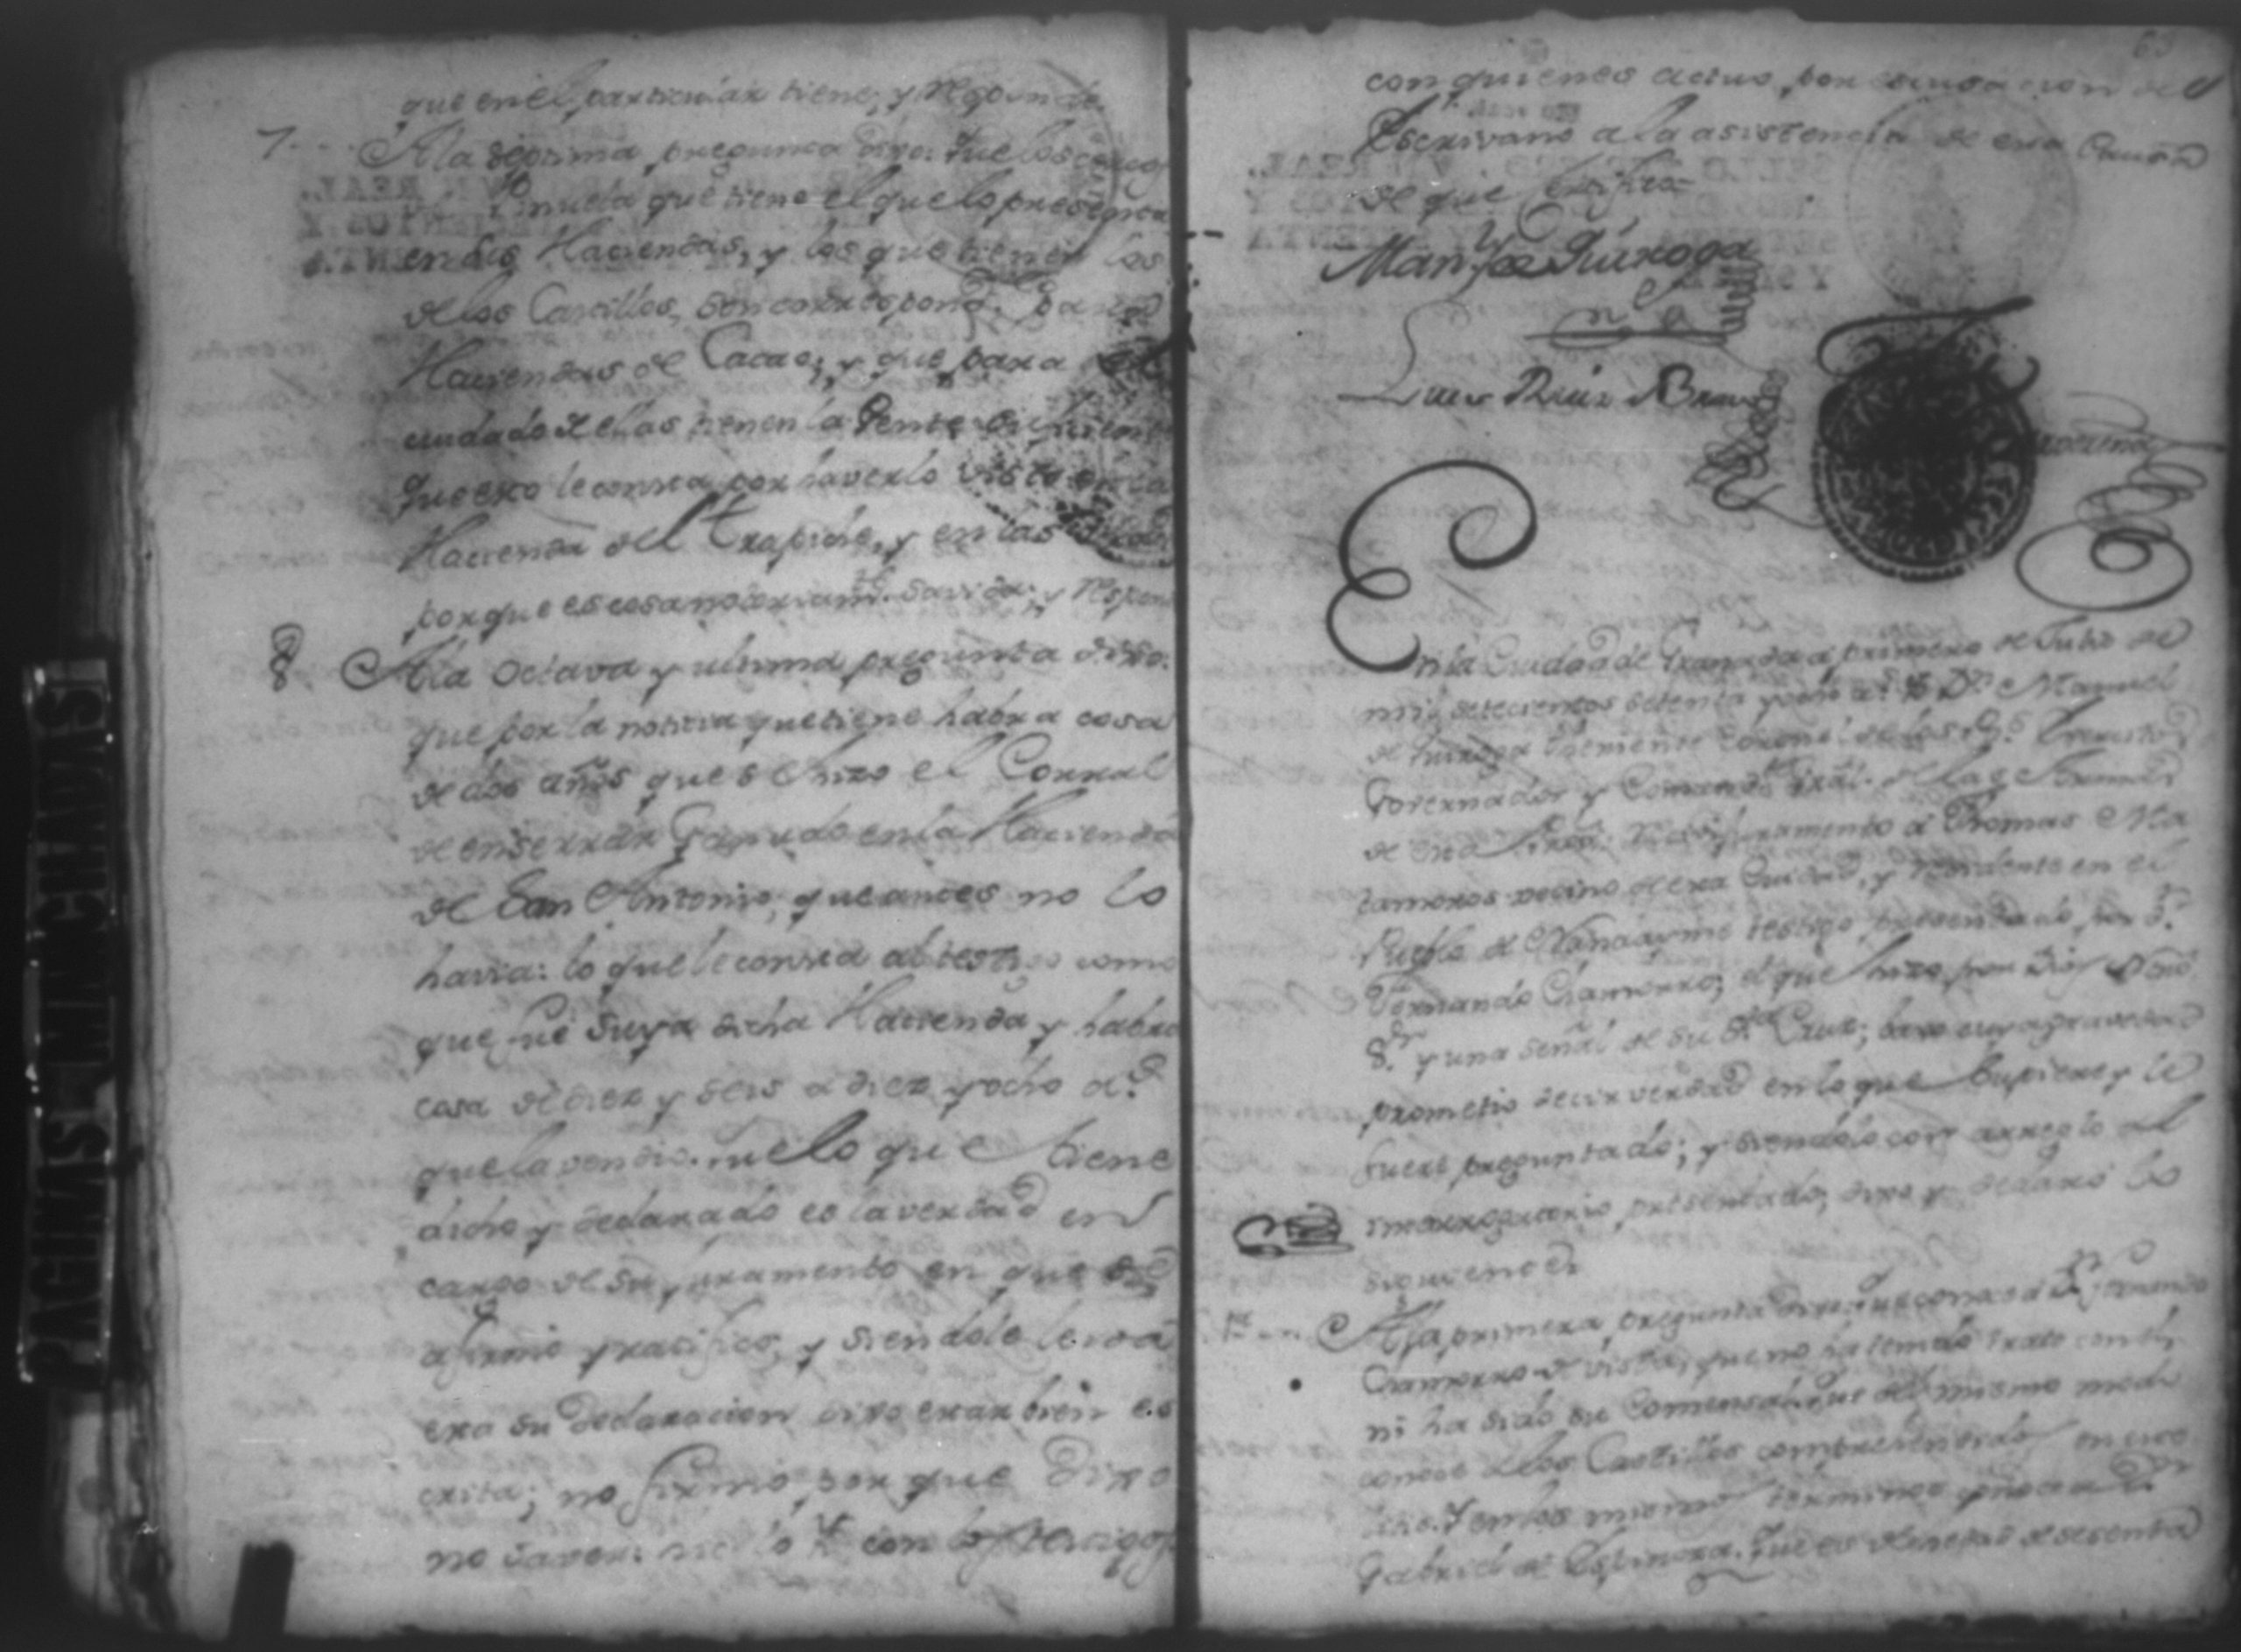 que en el particular tiene, y responde
7. A la septima pregunta dixo: Que los
que tiene el que lo presenta
en sus Haciendas, y los que tienen los
de los Castillos, son correspond.
Haciendas de Cacao; y que para el
cuidado de ellas tienen la Gente suficiente
Que esto le consta por haverlo visto en la
Hacienda del Trapiche, y en las
porque es cosa savida; y respon
8. A la Octava y ultima pregunta dixo:
que por la noticia que tiene habra cosa
de dos años que se hizo el Corral
de enserrar Ganado en la Hacienda
de San Antonio, que antes no lo
havia: lo que le consta al testigo como
que fue suya dicha Hacienda y habra
cosa de diez y seis a diez y ocho a.s
que la vendio. Que lo que tiene
dicho y declarado es la verdad en
cargo de su juramento en que se
afirmo y ratifico, y siendole leida
esta su declaracion dixo estar bien es
crita; no firmo por que dixo
no saver: con los testigos
63
con quienes actuo por escusacion del
Escrivano a la asistencia de esta Causa
de que certifico=
Man.l de Quiroga
Luis Ruiz Bravo
En la Ciudad de Granada a primero de Julio de
mil setecientos setenta y ocho a.s D.n Manuel
de Quiroga Theniente Coronel de los R.s Exercitos
Governador y Comand.te Gral. de las Armas
de esta juramento a Thomas Ma
tamoros vecino de esta Ciudad, y residente en el
Pueblo de Nandayme testigo presentado por D.n
Fernando Chamorro; el que hizo por Dios Nro
S.r y una señal de su S.ta Cruz; bajo cuya gravedad
prometio decir verdad en lo que supiere y le
fuere preguntado; y siendolo con arreglo al
interrogatorio presentado, dixo y declaro lo
siguiente
1.a A la primera pregunta dixo: Que conoce a D.n Fernando
Chamorro de vista, que no ha tenido trato con el,
ni ha sido su Comensal. Que del mismo modo
conoce a los Castillos comprehendidos en este
Y en los mismos terminos
Gabriel de Espinosa. Que es de hedad de sesenta